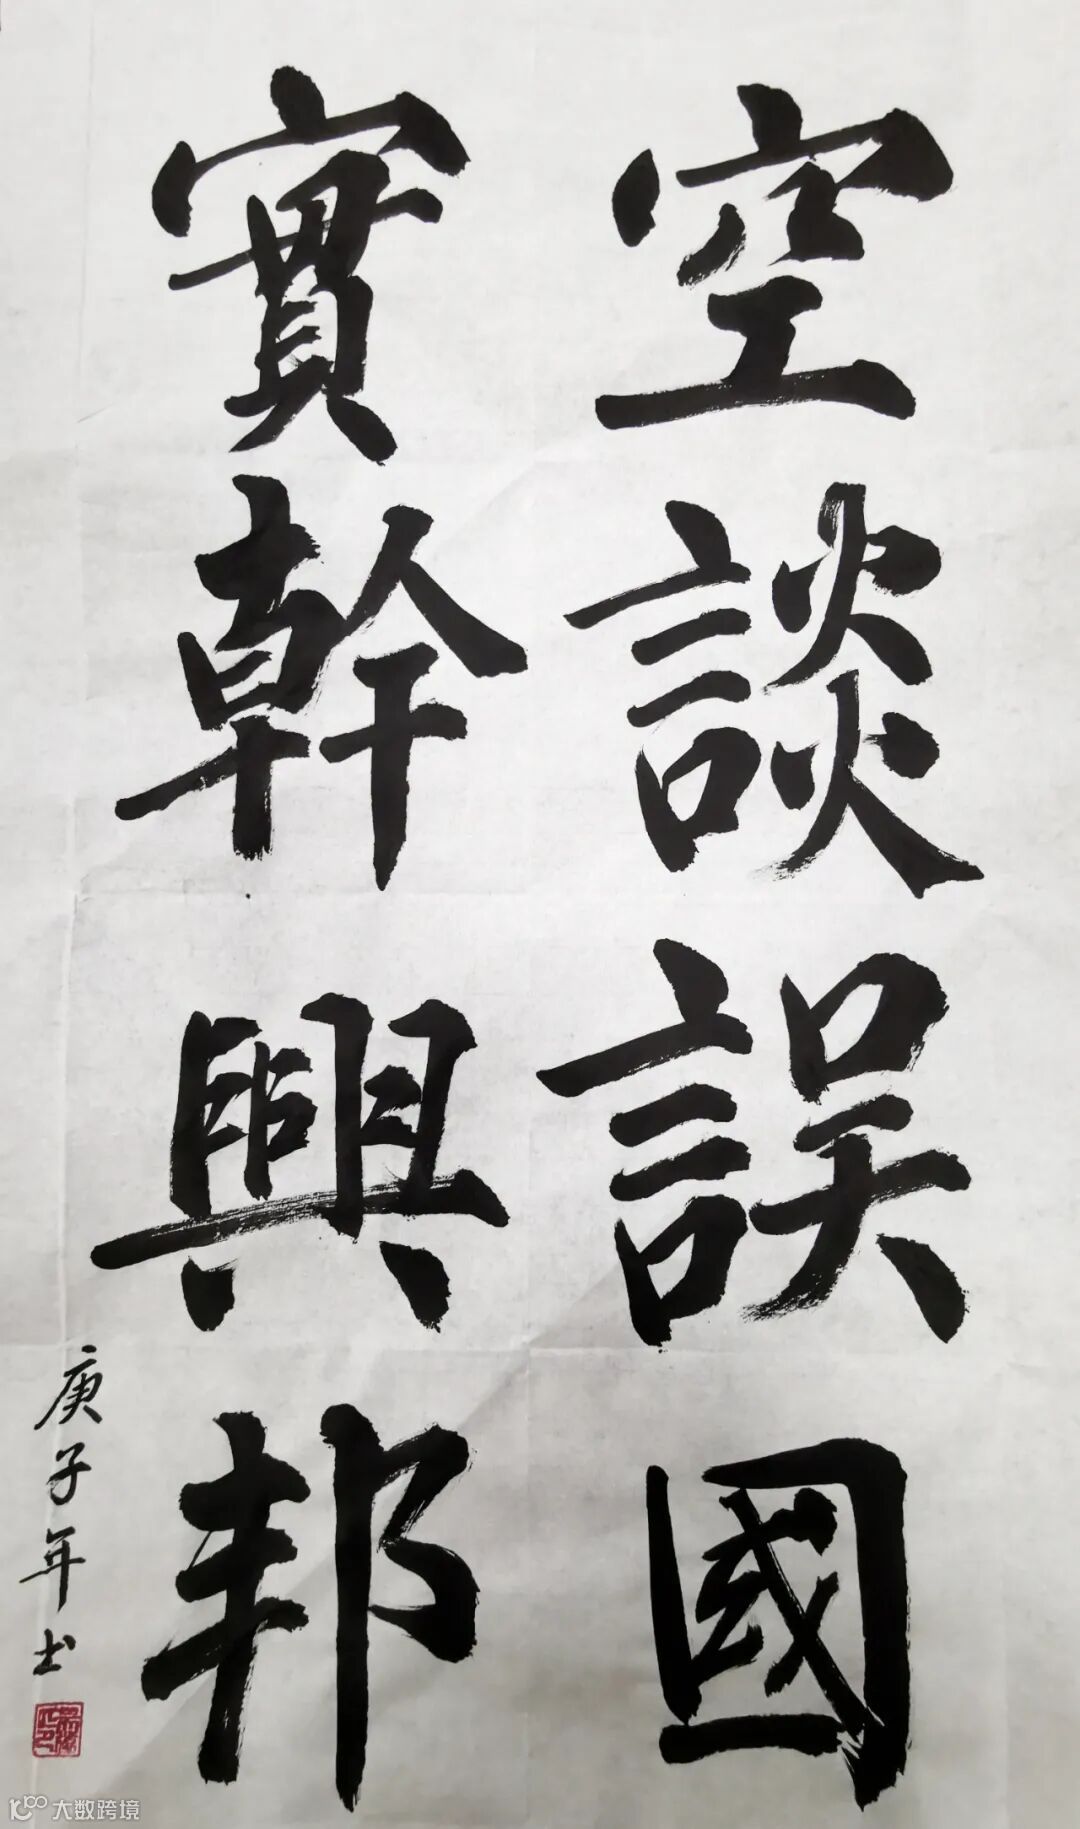 空談誤國
實幹興邦
庚子年书
大数跨境